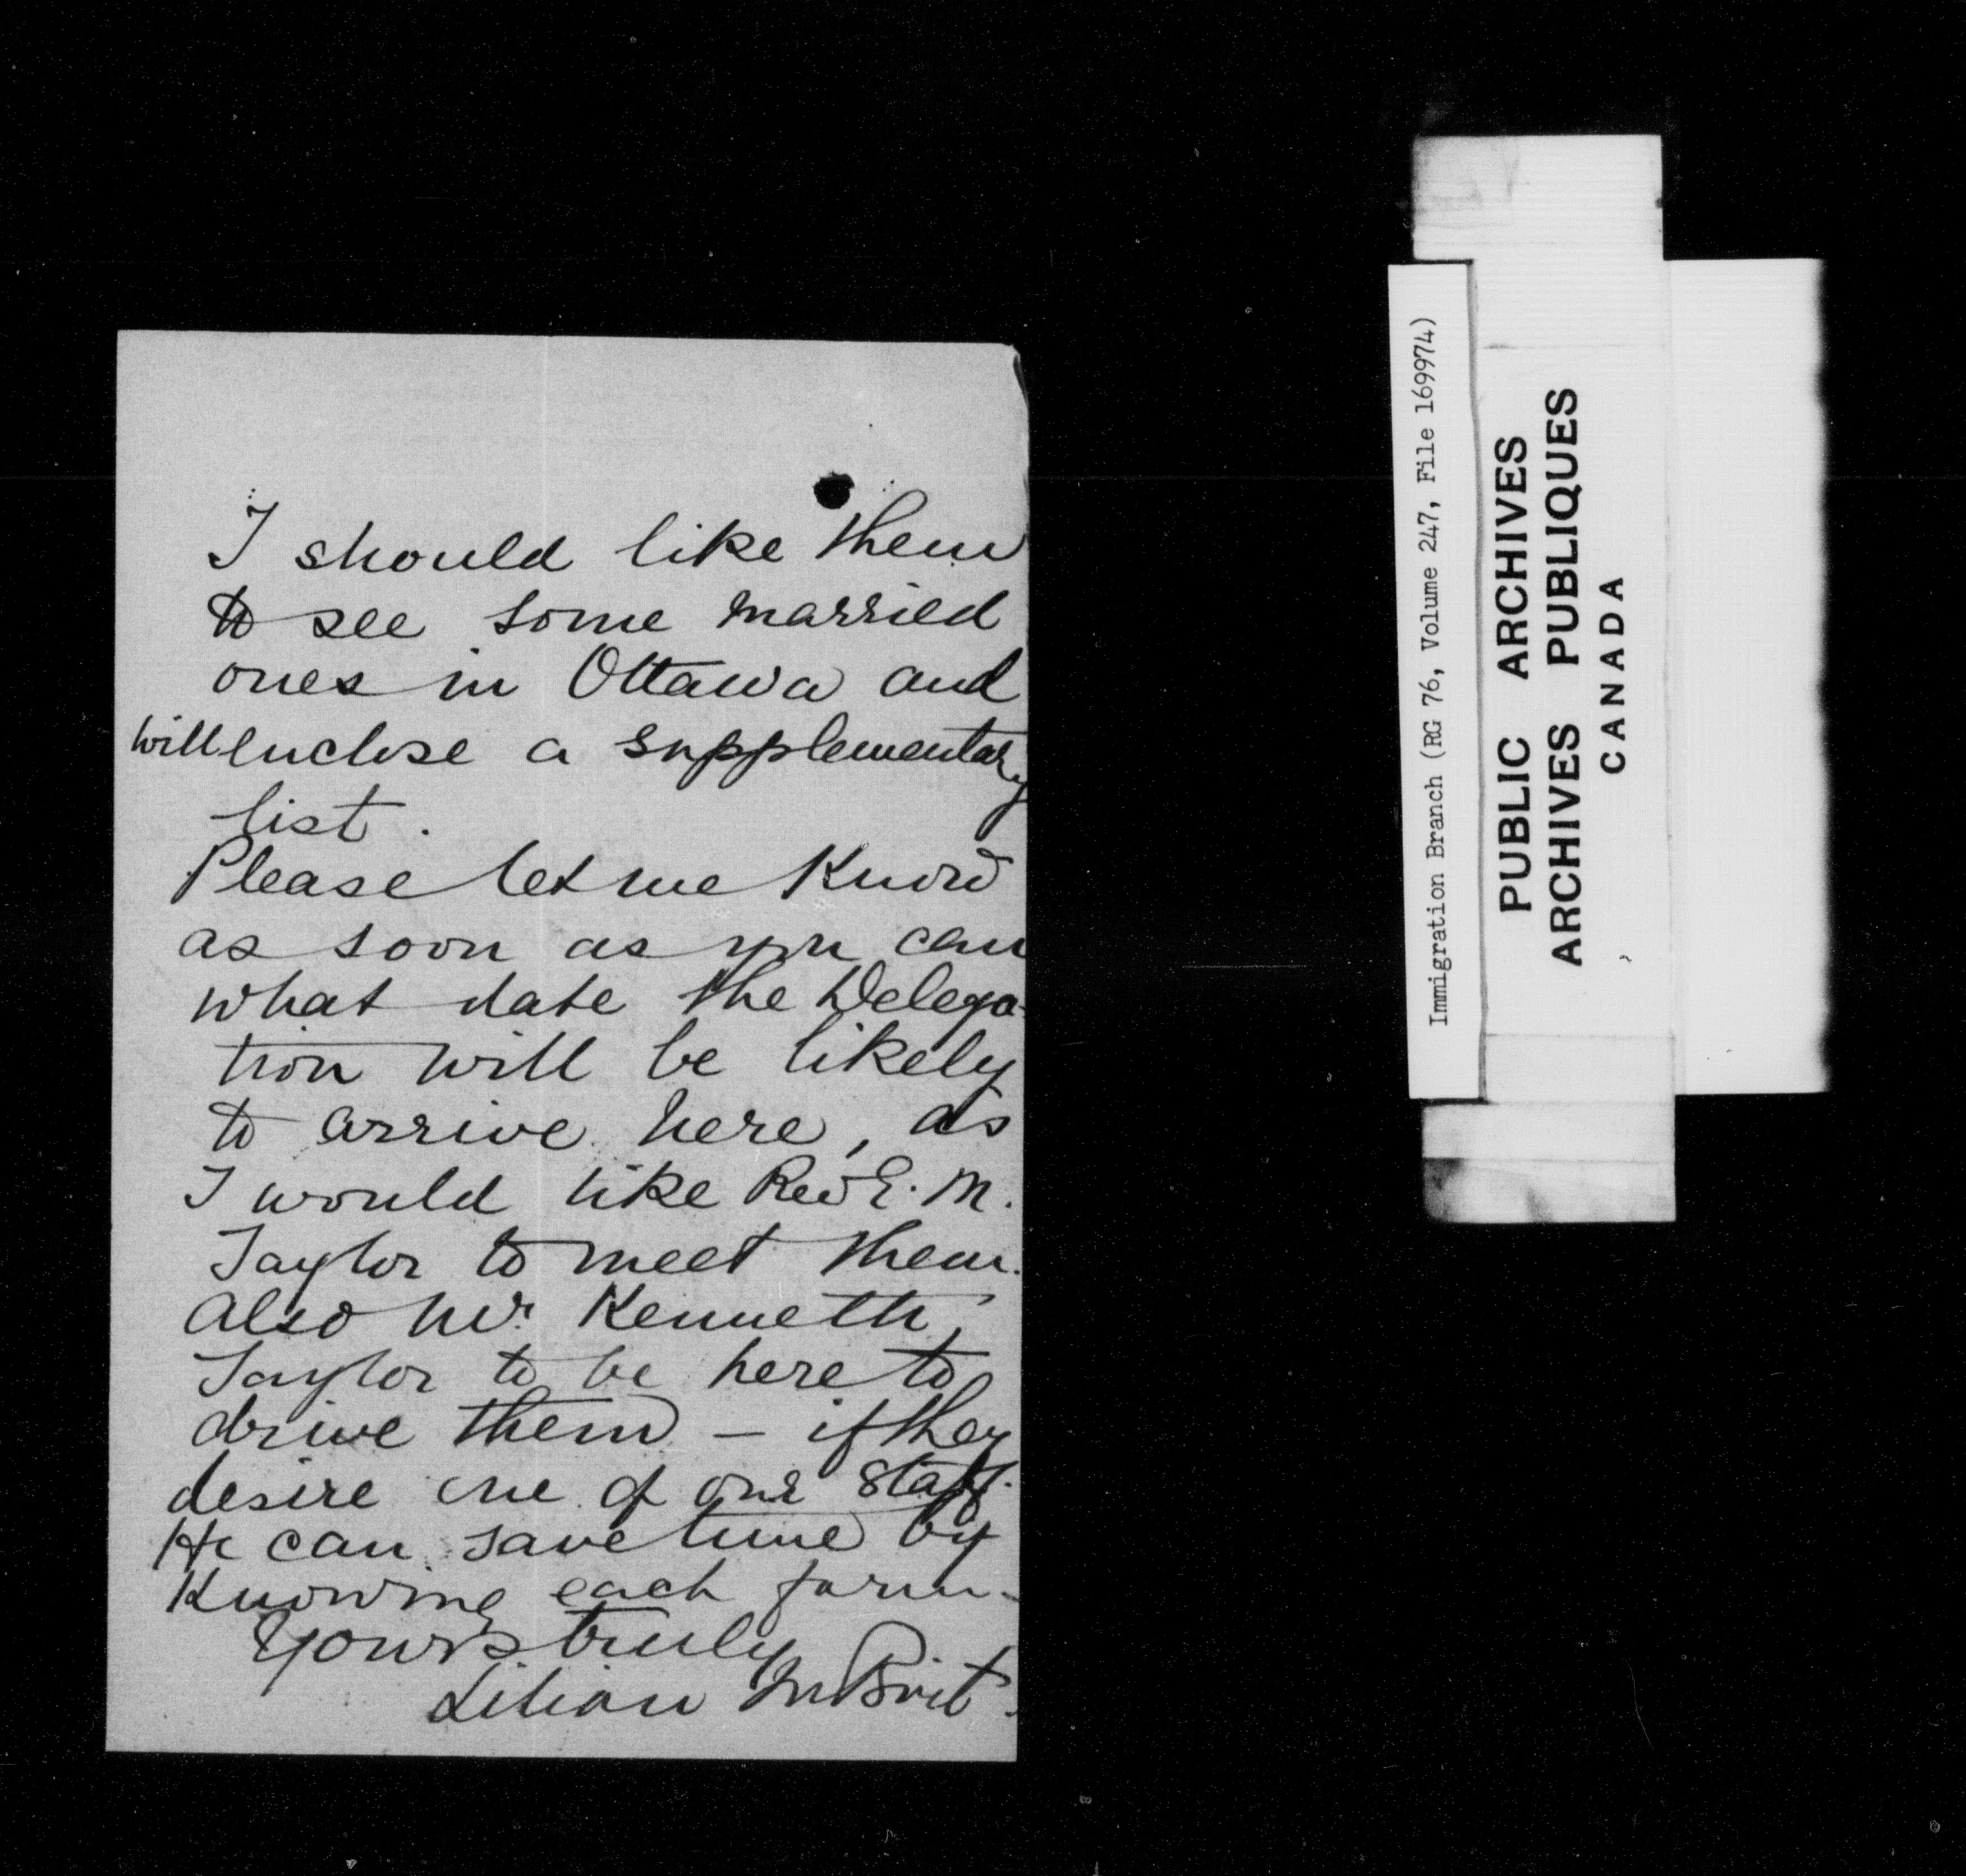 I should like them
to see some married
ones in Ottawa and
will enclose a supplementary
list.
Please let me know
as soon as you can
what date the Delega-
tion will be likely
to arrive here, as
I would like Rev E. M.
Taylor to meet them.
Also Mr. Kenneth
Taylor to be here to
drive them – if they
desire one of our staff.
He can save time by
Knowing each farm-
Yours truly
Lilian M Brit
Immigration Branch (RG 76, Volume 247, File 169974)
PUBLIC ARCHIVES
ARCHIVES PUBLIQUES
CANADA